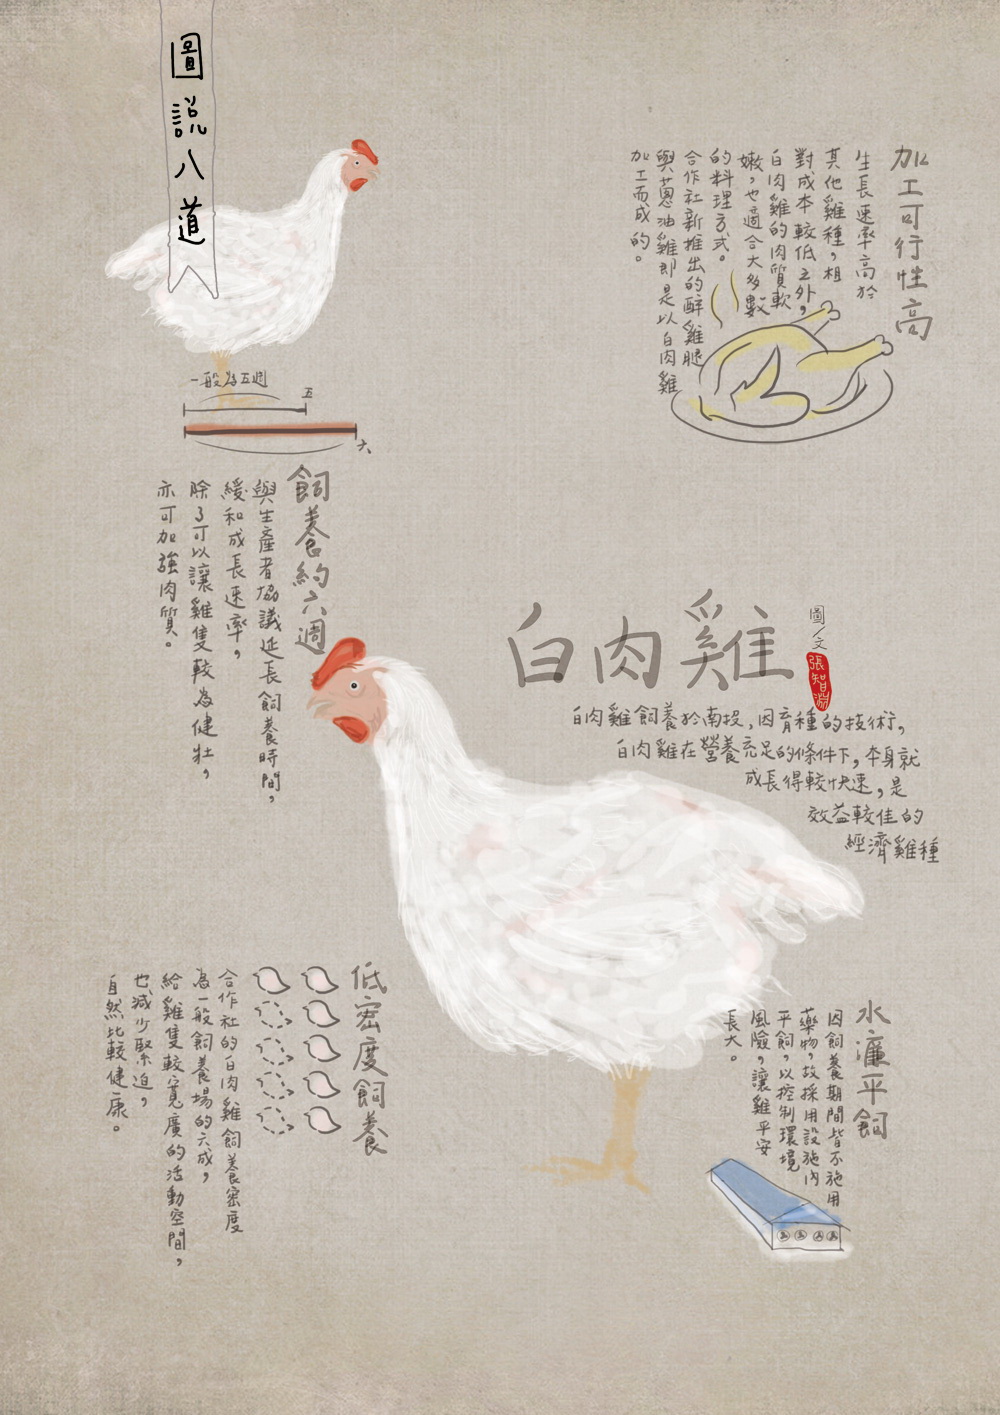 圖說八道
加工可行性高
生長速率高於
其他雞種，相
對成本較低之外，
白肉雞的肉質軟
嫩，也適合大多數
的料理方式。
合作社新推出的醉雞腿
與蔥油雞即是以白肉雞
加工而成的。
一般為五週
五
六
飼養約六週
與生產者協議延長飼養時間，
緩和成長速率，
除了可以讓雞隻較為健壯，
亦可加強肉質。
白肉雞
圖／文
張智淵
白肉雞飼養於南投，因育種的技術，
白肉雞在營養充足的條件下，本身就
成長得較快速，是
效益較佳的
經濟雞種
低密度飼養
合作社的白肉雞飼養密度
為一般飼養場的六成，
給雞隻較寬廣的活動空間，
也減少緊迫，
自然比較健康。
水濂平飼
因飼養期間皆不施用
藥物，故採用設施內
平飼，以控制環境
風險，讓雞平安
長大。